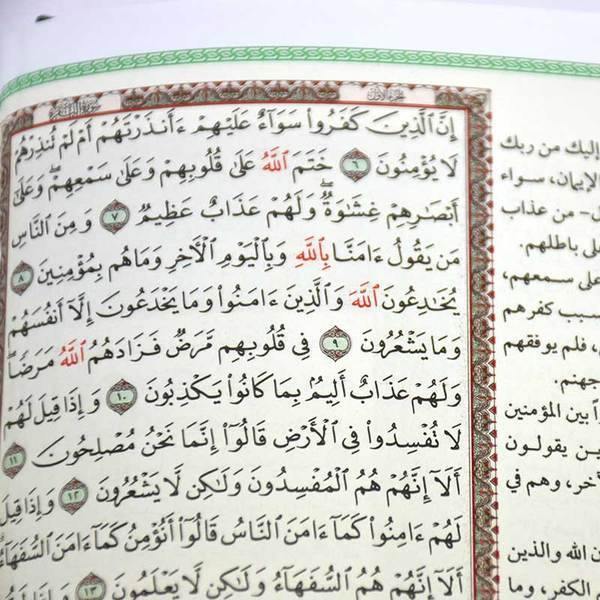 سورة البقرة
الجزء الأول
إِنَّ ٱلَّذِينَ كَفَرُوا۟ سَوَآءٌ عَلَيْهِمْ ءَأَنذَرْتَهُمْ أَمْ لَمْ تُنذِرْهُمْ
لَا يُؤْمِنُونَ ٦ خَتَمَ ٱللَّهُ عَلَىٰ قُلُوبِهِمْ وَعَلَىٰ سَمْعِهِمْ ۖ وَعَلَىٰٓ
أَبْصَٰرِهِمْ غِشَٰوَةٌ ۖ وَلَهُمْ عَذَابٌ عَظِيمٌ ٧ وَمِنَ ٱلنَّاسِ
مَن يَقُولُ ءَامَنَّا بِٱللَّهِ وَبِٱلْيَوْمِ ٱلْـَٔاخِرِ وَمَا هُم بِمُؤْمِنِينَ ٨
يُخَٰدِعُونَ ٱللَّهَ وَٱلَّذِينَ ءَامَنُوا۟ وَمَا يَخْدَعُونَ إِلَّآ أَنفُسَهُمْ
وَمَا يَشْعُرُونَ ٩ فِى قُلُوبِهِم مَّرَضٌ فَزَادَهُمُ ٱللَّهُ مَرَضًا
وَلَهُمْ عَذَابٌ أَلِيمٌۢ بِمَا كَانُوا۟ يَكْذِبُونَ ١٠ وَإِذَا قِيلَ لَهُمْ
لَا تُفْسِدُوا۟ فِى ٱلْأَرْضِ قَالُوٓا۟ إِنَّمَا نَحْنُ مُصْلِحُونَ ١١
أَلَآ إِنَّهُمْ هُمُ ٱلْمُفْسِدُونَ وَلَٰكِن لَّا يَشْعُرُونَ ١٢ وَإِذَا قِيلَ
لَهُمْ ءَامِنُوا۟ كَمَآ ءَامَنَ ٱلنَّاسُ قَالُوٓا۟ أَنُؤْمِنُ كَمَآ ءَامَنَ ٱلسُّفَهَآءُ ۗ
أَلَآ إِنَّهُمْ هُمُ ٱلسُّفَهَآءُ وَلَٰكِن لَّا يَعْلَمُونَ ١٣ وَإِذَا
إليك من ربك
الإيمان، سواء
من عذاب
على باطلهم.
على سمعهم،
سبب كفرهم
فلم يوفقهم
جهنم.
بين المؤمنين
ين يقولون
آخر، وهم في
الله والذين
الكفر، وما